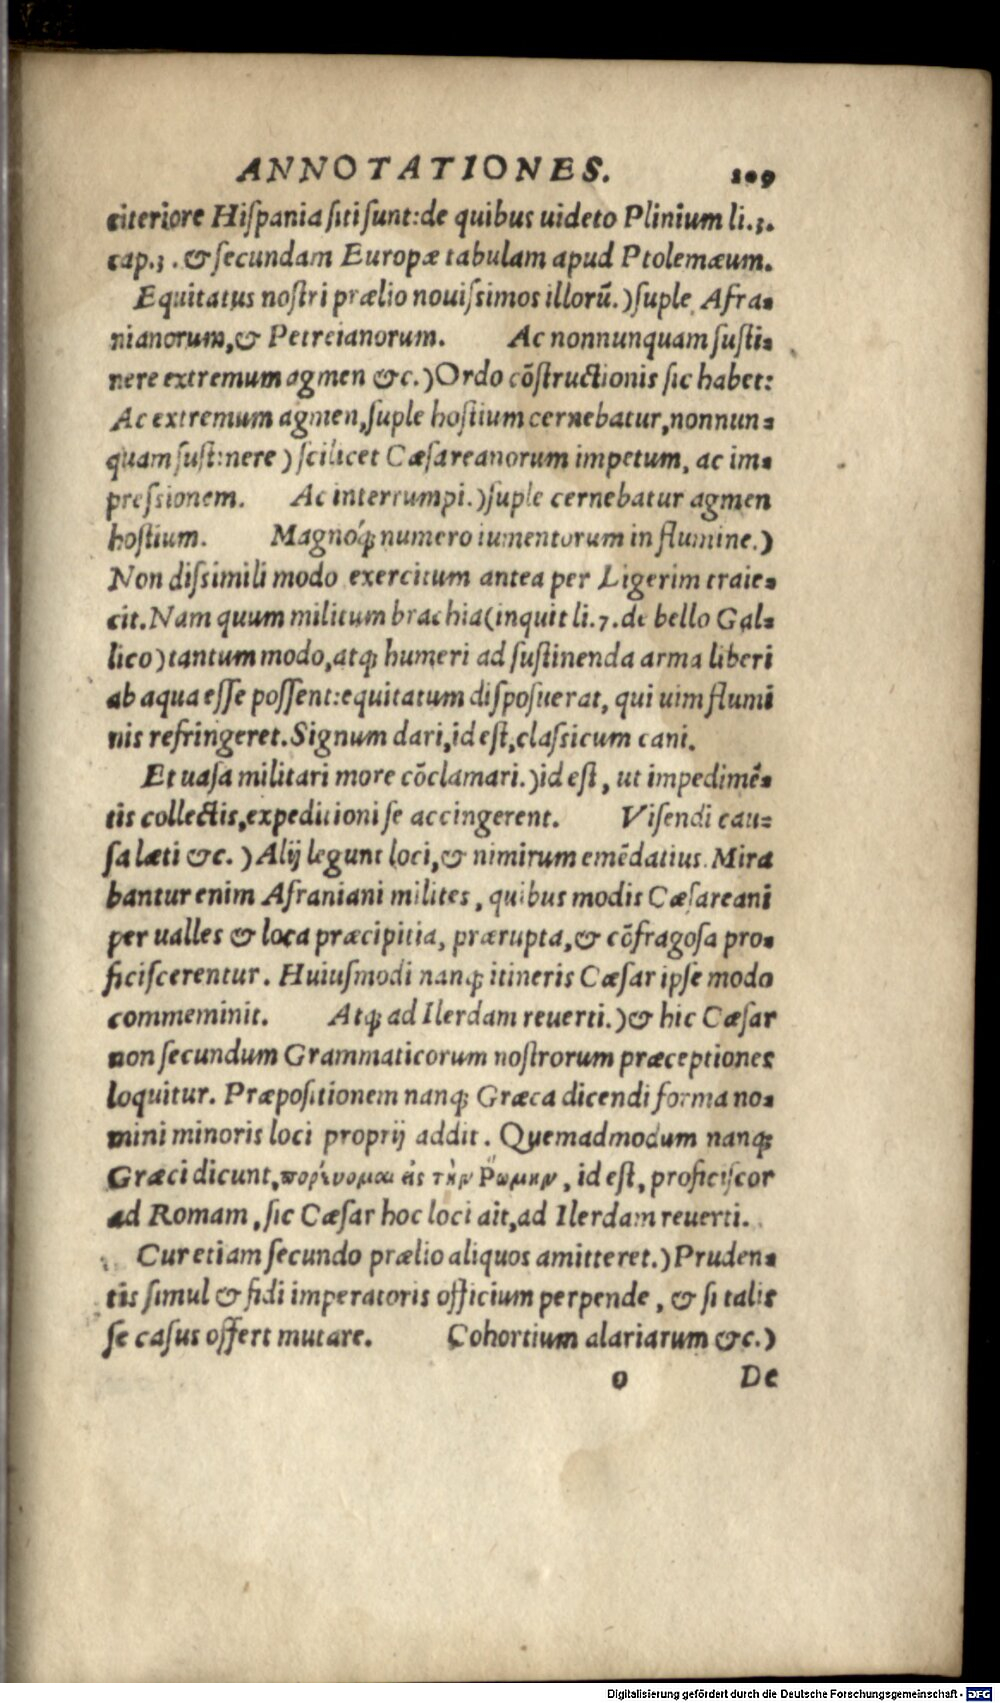 ANNOTATIONES. 109
citeriore Hiſpania ſiti ſunt: de quibus uideto Plinium li.3.
cap.3. & ſecundam Europæ tabulam apud Ptolemæum.
Equitatus noſtri prælio nouiſsimos illorū.) ſuple Afra=
nianorum, & Petreianorum. Ac nonnunquam ſuſti=
nere extremum agmen &c.) Ordo cōſtructionis ſic habet:
Ac extremum agmen, ſuple hoſtium cernebatur, nonnun=
quam ſuſtinere) ſcilicet Cæſareanorum impetum, ac im=
preſsionem. Ac interrumpi.) ſuple cernebatur agmen
hoſtium. Magnóq; numero iumentorum in flumine.)
Non diſsimili modo exercitum antea per Ligerim traie=
cit. Nam quum militum brachia (inquit li.7. de bello Gal=
lico) tantum modo, atq; humeri ad ſuſtinenda arma liberi
ab aqua eſſe poſſent: equitatum diſpoſuerat, qui uim flumi
nis refringeret. Signum dari, id eſt, claſsicum cani.
Et uaſa militari more cōclamari.) id eſt, ut impedimē=
tis collectis, expeditioni ſe accingerent. Viſendi cau=
ſa læti &c.) Alij legunt loci, & nimirum emēdatius. Mira
bantur enim Afraniani milites, quibus modis Cæſareani
per ualles & loca præcipitia, prærupta, & cōfragoſa pro=
ficiſcerentur. Huiuſmodi nanq; itineris Cæſar ipſe modo
commeminit. Atq; ad Ilerdam reuerti.) & hic Cæſar
non ſecundum Grammaticorum noſtrorum præceptiones
loquitur. Præpoſitionem nanq; Græca dicendi forma no=
mini minoris loci proprij addit. Quemadmodum nanq;
Græci dicunt, πορεύομαι εἰς τὴν Ῥώμην, id eſt, proficiſcor
ad Romam, ſic Cæſar hoc loci ait, ad Ilerdam reuerti.
Cur etiam ſecundo prælio aliquos amitteret.) Pruden=
tis ſimul & fidi imperatoris officium perpende, & ſi talis
ſe caſus offert mutare. Cohortium alariarum &c.)
o De
Digitalisierung gefördert durch die Deutsche Forschungsgemeinschaft - DFG